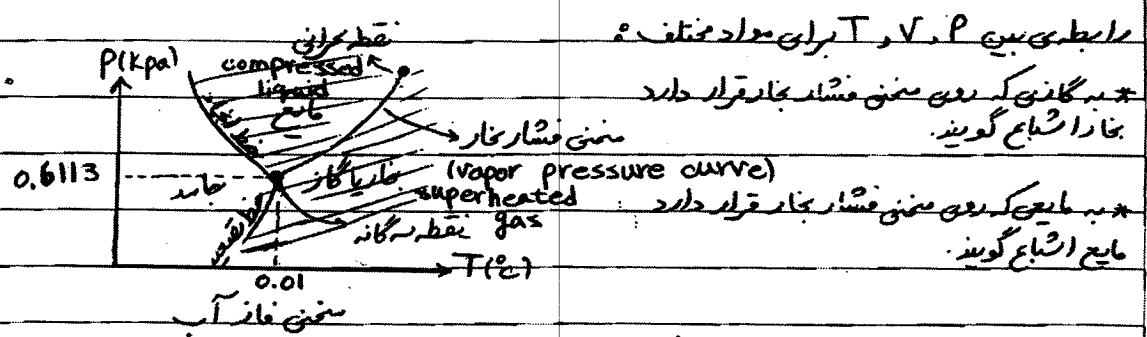 رابطه‌ی بین P، V و T برای مواد مختلف :
* به گازی که روی منحنی فشار بخار قرار دارد
بخار اشباع گویند.
* به مایعی که روی منحنی فشار بخار قرار دارد
مایع اشباع گویند.
P(Kpa)
نقطه بحرانی
compressed
liquid
مایع
منحنی فشار بخار
(vapor pressure curve)
0.6113
جامد
بخار یا گاز
superheated
gas
نقطه سه گانه
0.01
T(°C)
منحنی فاز آب